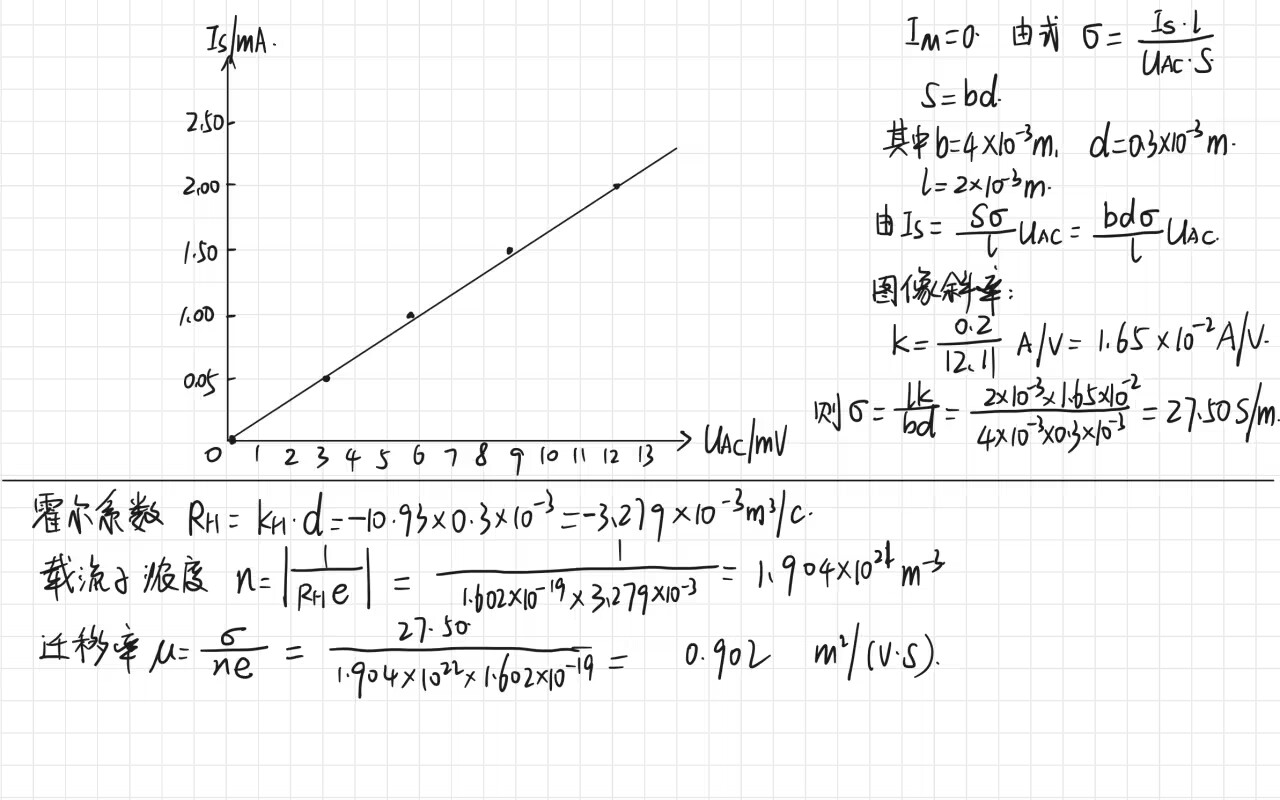 Is/mA.
2.50
2.00
1.50
1.00
0.05
0 1 2 3 4 5 6 7 8 9 10 11 12 13 UAC/mV
IM=0. 由式 σ= Is·l / UAC·S
S=bd.
其中b=4×10⁻³m, d=0.3×10⁻³m.
l=2×10⁻³m.
由Is= Sσ/l UAC= bdσ/l UAC.
图像斜率:
k= 0.2/12.11 A/V= 1.65×10⁻²A/V.
则σ= lk/bd = 2×10⁻³×1.65×10⁻² / 4×10⁻³×0.3×10⁻³ = 27.50S/m.
霍尔系数 RH= KH·d=-10.93×0.3×10⁻³=-3.279×10⁻³m³/c.
载流子浓度 n=|1/RHe| = 1 / 1.602×10⁻¹⁹×3.279×10⁻³ = 1.904×10²¹m⁻³
迁移率 μ= σ/ne = 27.50 / 1.904×10²²×1.602×10⁻¹⁹ = 0.902 m²/(V·S).